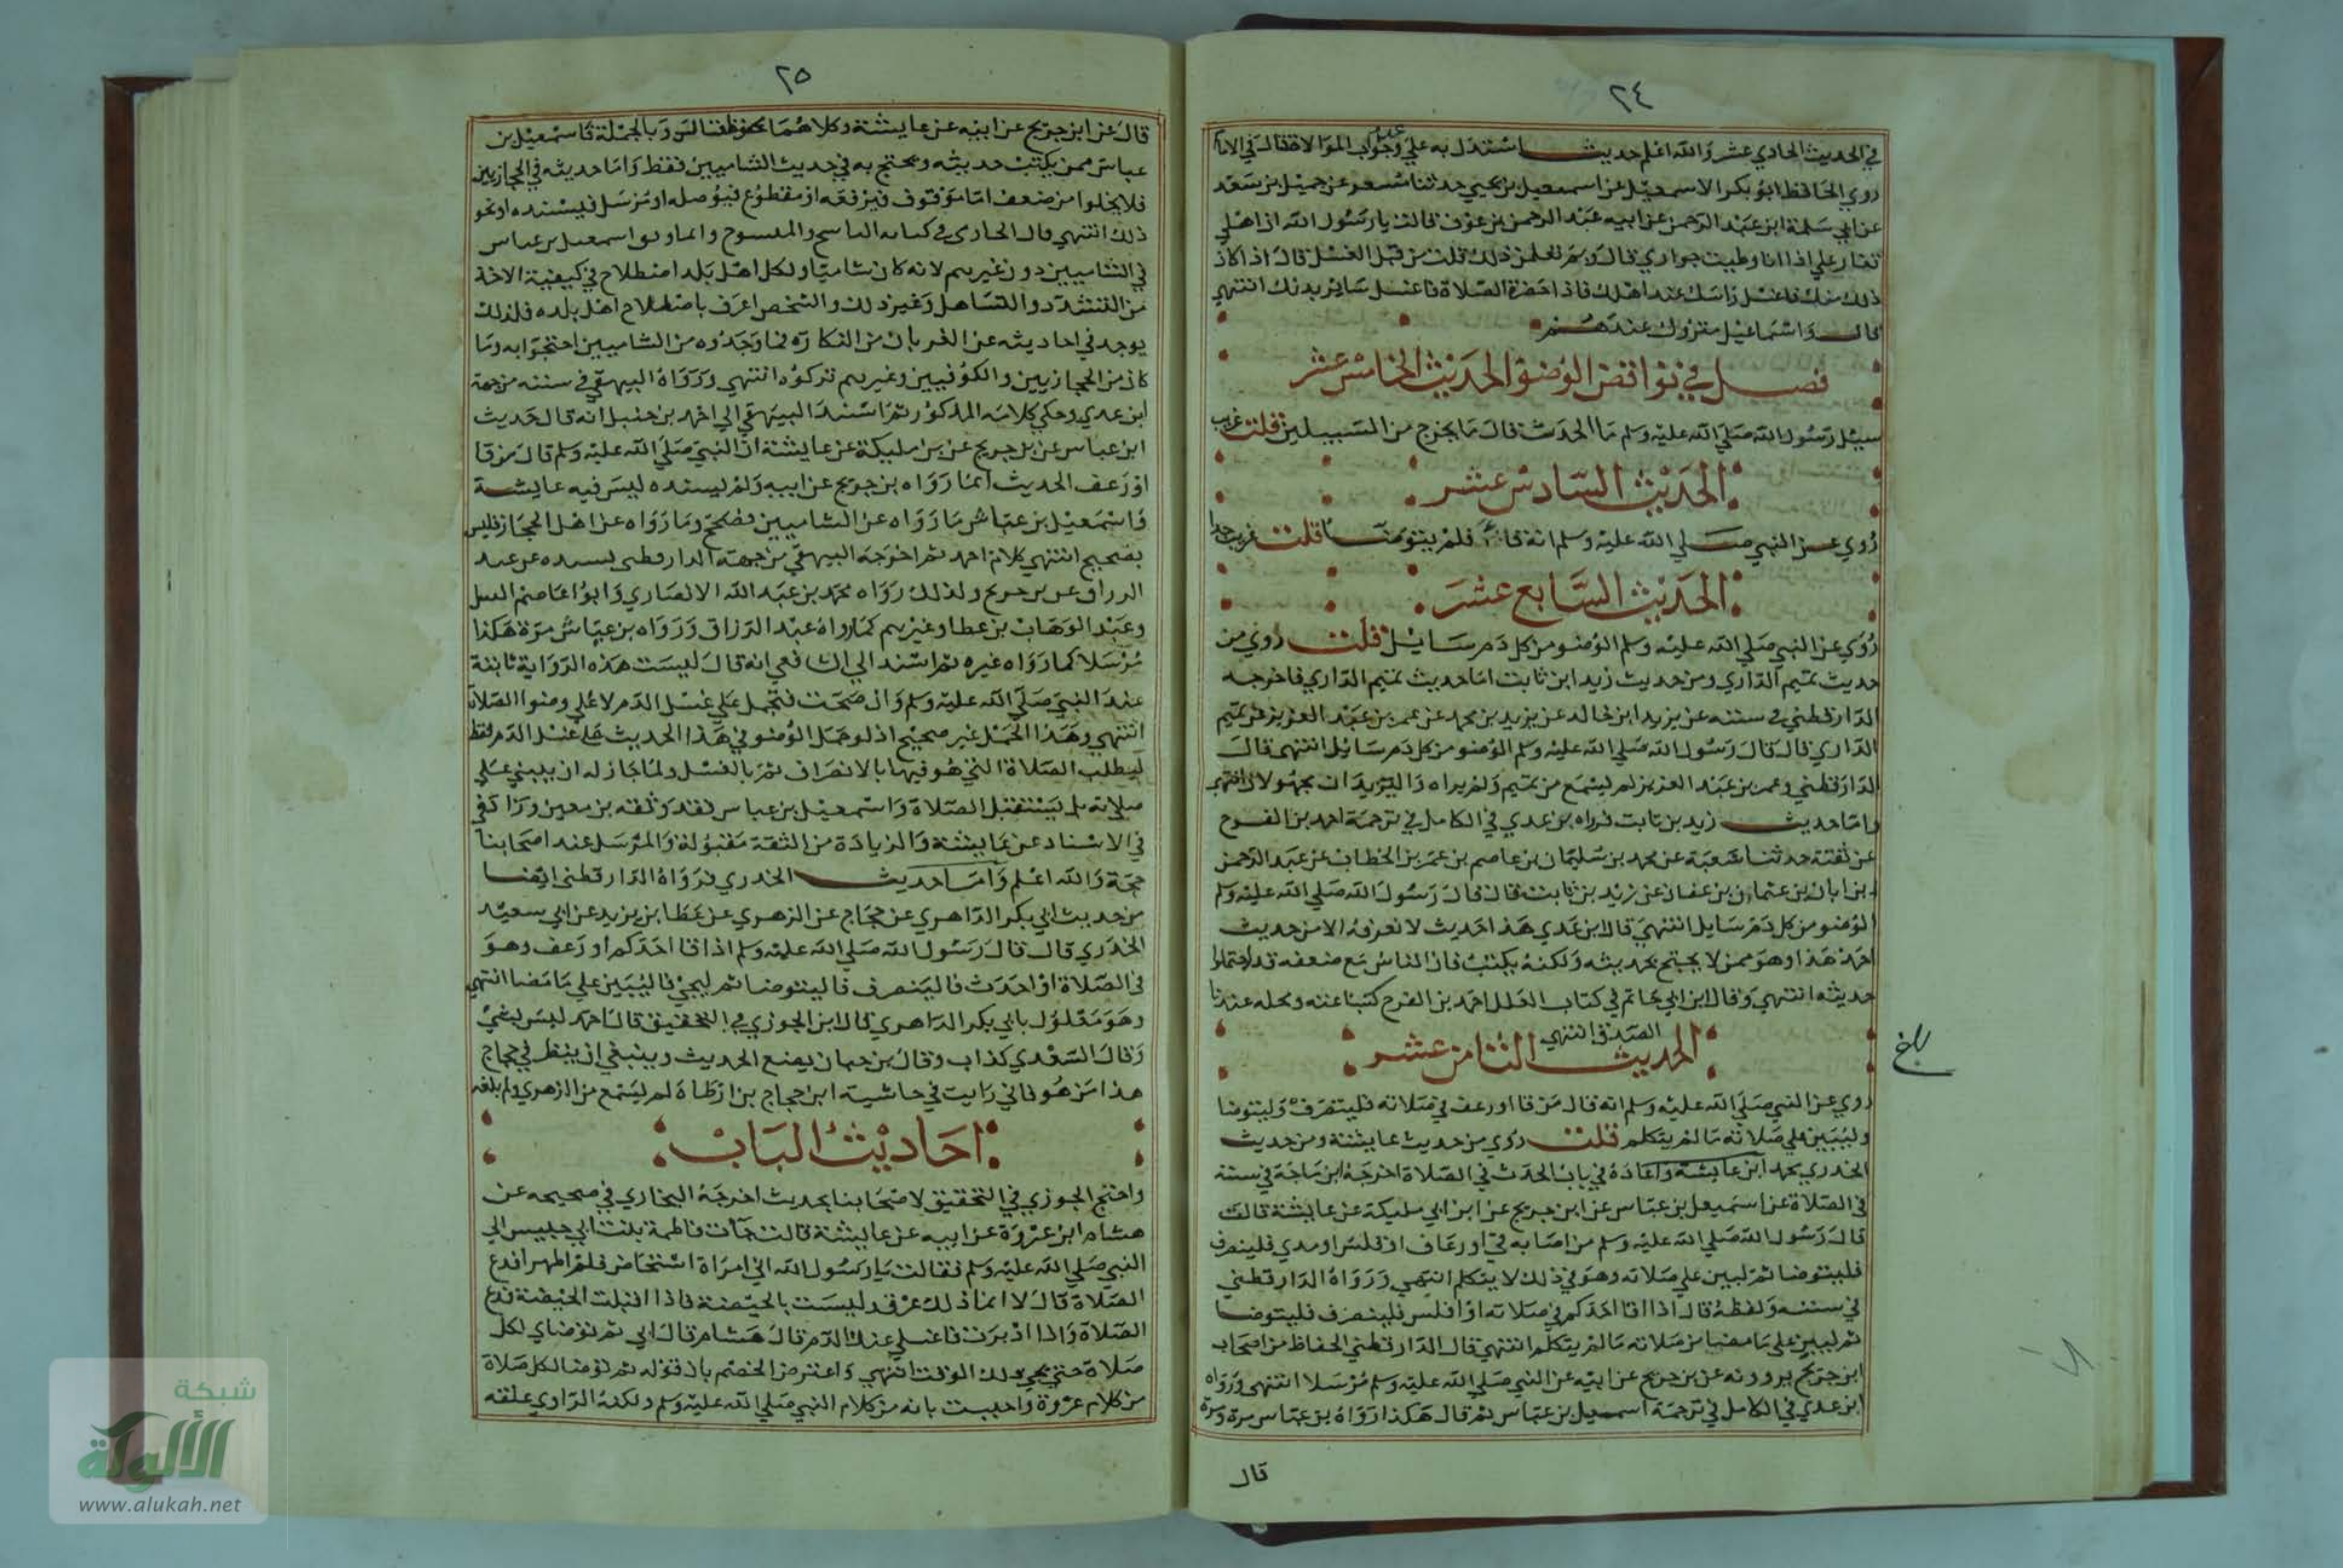 ٢٤
في الحديث الحادي عشر والله اعلم حديث استدل به علي عدم وجوب الموالاة قال في الامام
روي الحافظ ابو بكر الاسمعيلي عن اسمعيل بن يحيي حدثنا مسعر عن حميد بن سعد
عن ابي سلمة ابن عبد الرحمن عن ابيه عبد الرحمن بن عوف قالت يا رسول الله ان اهلي
تغار علي اذا انا وطيت جواري قال وبم تعلمن ذلك قلت من قبل الغسل قال اذا كان
ذلك منك فاغسل راسك عند اهلك فاذا حضرة الصلاة فاغسل ساير بدنك انتهي
قال واسماعيل متروك عندهم
فصل في نواقض الوضوء الحديث الخامس عشر
سيل رسول الله صلي الله عليه وسلم ما الحدث قال ما يخرج من السبيلين قلت غريب
الحديث السادس عشر
روي عن النبي صلي الله عليه وسلم انه قاء فلم يتوضا قلت غريب جدا
الحديث السابع عشر
روي عن النبي صلي الله عليه وسلم الوضو من كل دم سايل قلت روي من
حديث تميم الداري ومن حديث زيد ابن ثابت اما حديث تميم الداري فاخرجه
الدارقطني في سننه عن يزيد ابن خالد عن يزيد بن محمد عن عمر بن عبد العزيز عن تميم
الداري قال قال رسول الله صلي الله عليه وسلم الوضو من كل دم سايل انتهى قال
الدارقطني وعمر بن عبد العزيز لم يسمع من تميم ولم يراه واليزيدان مجهولان انتهي
واما حديث زيد بن ثابت فرواه بن عدي في الكامل في ترجمة احمد بن الفرج
عن بقية حدثنا شعبة عن محمد بن سليمان بن عاصم بن عمر بن الخطاب عن عبد الرحمن
بن ابان بن عثمان بن عفان عن زيد بن ثابت قال قال رسول الله صلي الله عليه وسلم
الوضو من كل دم سايل انتهي قال ابن عدي هذا حديث لا نعرفه الا من حديث
احمد هذا وهو ممن لا يحتج بحديثه ولكنه يكتب فان الناس مع ضعفه قد احتملوا
حديثه انتهي وقال ابن ابي حاتم في كتاب العلل احمد بن الفرج كتبنا عنه ومحله عندنا
الصدق انتهي
الحديث الثامن عشر
روي عن النبي صلي الله عليه وسلم انه قال من قا او رعف في صلاته فلينصرف وليتوضا
وليبين علي صلاته ما لم يتكلم قلت روي من حديث عايشة ومن حديث
الخدري محمد ابن عايشة واعاده في باب الحدث في الصلاة اخرجه ابن ماجة في سننه
في الصلاة عن اسمعيل بن عياس عن ابن جريج عن ابن ابي مليكة عن عايشة قالت
قال رسول الله صلي الله عليه وسلم من اصابه قي او رعاف او قلس او مدي فلينصرف
فليتوضا ثم ليبين علي صلاته وهو في ذلك لا يتكلم انتهي ورواه الدارقطني
في سننه ولفظه قال اذا قا احدكم في صلاته او قلس فلينصرف فليتوضا
ثم ليبين علي ما مضي من صلاته ما لم يتكلم انتهي قال الدارقطني الحفاظ من اصحاب
ابن جريج يروونه عن بن جريج عن ابيه عن النبي صلي الله عليه وسلم مرسلا انتهى ورواه
ابن عدي في الكامل في ترجمة اسمعيل بن عياس ثم قال هكذا رواه بن عياس مرة ومرة
قال
٢٥
قال عن ابن جريج عن ابيه عن عايشة وكلاهما وبالجملة فاسمعيل بن
عياس ممن يكتب حديثه ويحتج به في حديث الشاميين فقط واما حديثه في الحجازيين
فلا يخلوا من ضعف اما موقوف فيرفعه او مقطوع فيوصله او مرسل فيسنده او نحو
ذلك انتهي قال الحازمي في كتابه الناسخ والمنسوخ وانما اسمعيل بن عياس
في الشاميين دون غيرهم لانه كان شاميا ولكل اهل بلد اصطلاح في كيفية الاخذ
من التشدد والتساهل وغير ذلك والشخص اعرف باصطلاح اهل بلده فلذلك
يوجد في احاديثه عن الغرباء من النكارة فما وجدوه من الشاميين احتجوا به وما
كان من الحجازيين والكوفيين وغيرهم تركوه انتهي ورواه البيهقي في سننه من جهة
ابن عدي وحكي كلامه المذكور ثم اسند البيهقي الي احمد بن حنبل انه قال حديث
ابن عياس عن بن جريج عن بن مليكة عن عايشة ان النبي صلي الله عليه وسلم قال من قا
او رعف الحديث انما رواه بن جريج عن ابيه ولم يسنده ليس فيه عايشة
واسمعيل بن عياش ما رواه عن الشاميين فصحيح وما رواه عن اهل الحجاز فليس
بصحيح انتهي كلام احمد ثم اخرجه البيهقي من جهة الدارقطني بسنده عن عبد
الرزاق عن بن جريج ولذلك رواه محمد بن عبد الله الانصاري وابوا عاصم النبيل
وعبد الوهاب بن عطا وغيرهم كما رواه عبد الرزاق ورواه بن عياش مرة هكذا
مرسلا كما رواه غيره ثم اسند الي الشافعي انه قال ليست هذه الرواية ثابتة
عند النبي صلي الله عليه وسلم وان صحت فتحمل علي غسل الدم لا علي وضوا الصلاة
انتهي وهذا الحمل غير صحيح اذ لو حمل الوضو في هذا الحديث علي غسل الدم فقط
ليطلب الصلاة التي هو فيها بالانصراف ثم بالغسل ولما جاز له ان يبني علي
صلاته بل يستقبل الصلاة واسمعيل بن عياس فقد وثقه بن معين وزاد في
في الاسناد عن عايشة والزيادة من الثقة مقبولة والمرسل عند اصحابنا
حجة والله اعلم واما حديث الخدري فرواه الدارقطني ايضا
من حديث ابي بكر الداهري عن حجاج عن الزهري عن عطا بن يزيد عن ابي سعيد
الخدري قال قال رسول الله صلي الله عليه وسلم اذا قا احدكم او رعف وهو
في الصلاة او احدث فالينصرف فاليتوضا ثم ليجي فاليبين علي ما مضا انتهي
وهو معلول بابي بكر الداهري قال ابن الجوزي في التحقيق قال احمد ليس بشيء
وقال السعدي كذاب وقال بن حبان يضع الحديث وينبغي ان ينظر في حجاج
هذا من هو فاني رايت في حاشية ابن حجاج بن ارطاة لم يسمع من الزهري ولم يلقه
احاديث الباب
واحتج الجوزي في التحقيق لاصحابنا بحديث اخرجه البخاري في صحيحه عن
هشام ابن عروة عن ابيه عن عايشة قالت جأت فاطمة بنت ابي حبيس الي
النبي صلي الله عليه وسلم فقالت يا رسول الله اني امراة استحاض فلم اطهر افدع
الصلاة قال لا انما ذلك عرق وليست بالحيضة فاذا اقبلت الحيضة فدع
الصلاة واذا ادبرت فاغسلي عنك الدم قال هشام قال ابي ثم توضاي لكل
صلاة حتي يجي ذلك الوقت انتهي واعترض الخصم بان قوله ثم توضا لكل صلاة
من كلام عروة واجيبت بانه من كلام النبي صلي الله عليه وسلم ولكنه الراوي علقه
شبكة
الألوكة
www.alukah.net